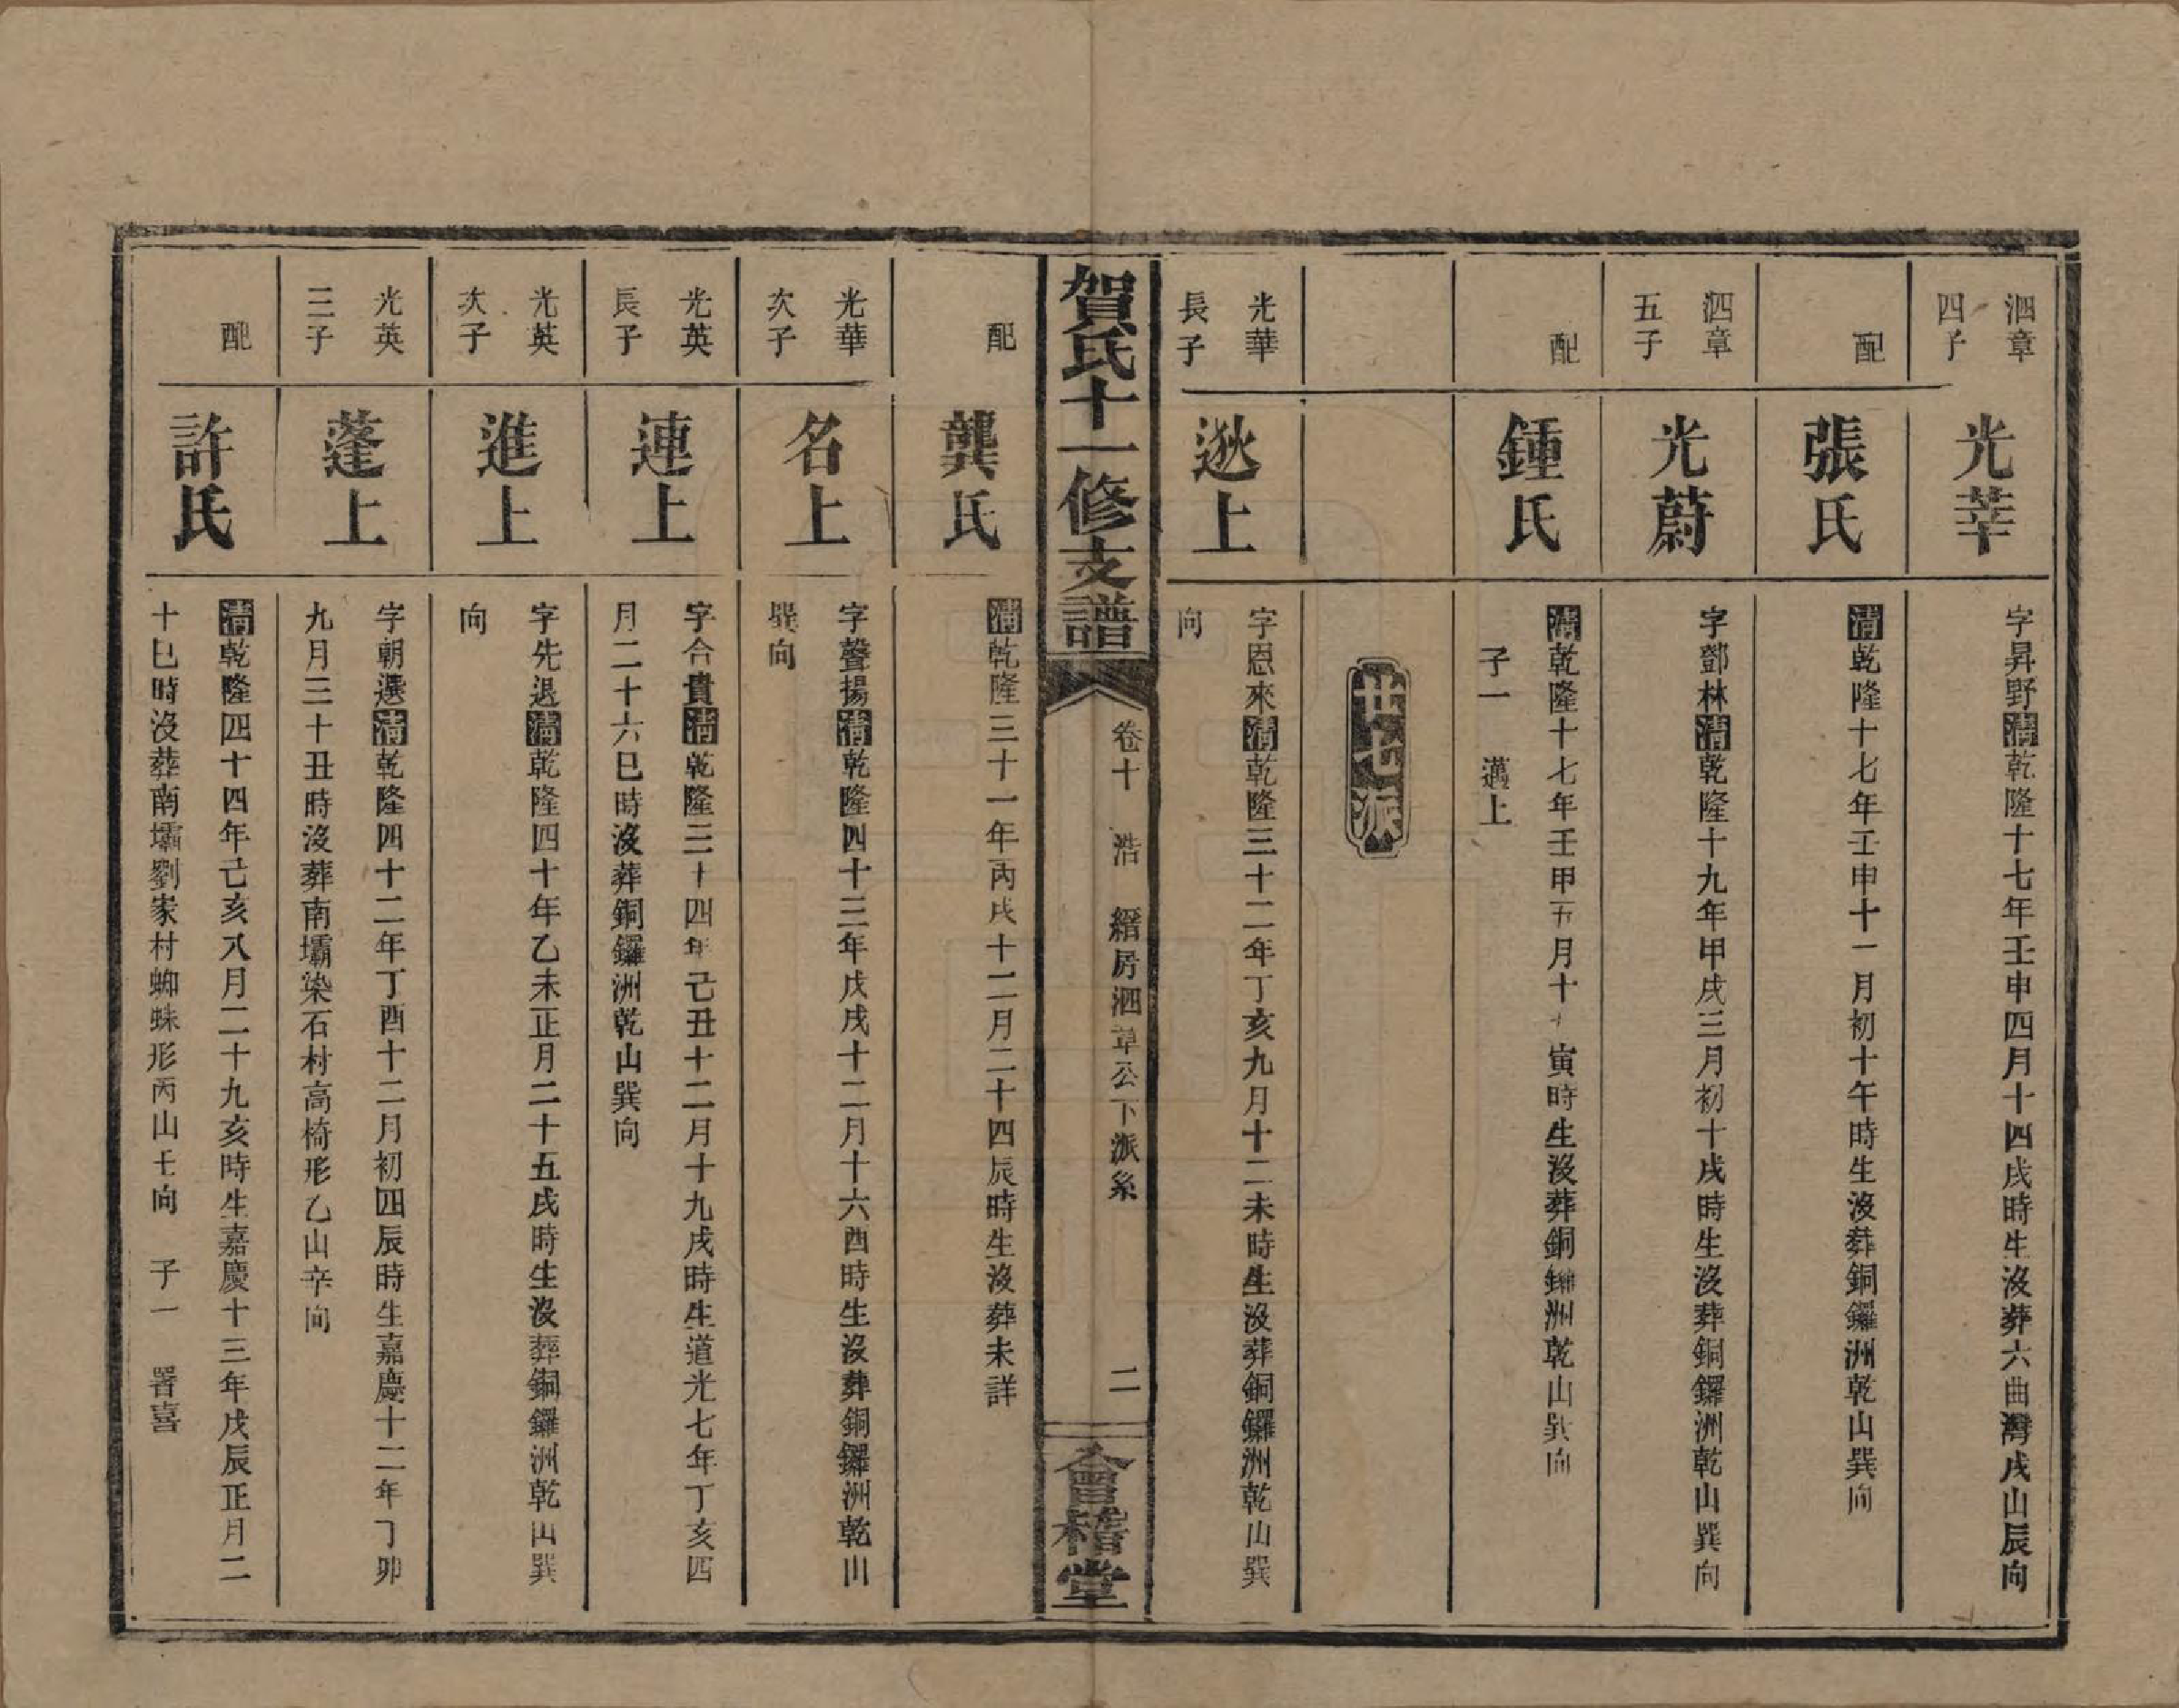 泗章
四子
光莘
字昇野清乾隆十七年壬申四月十四戌時生沒葬六曲灣戌山辰向
配
張氏
清乾隆十七年壬申十一月初十午時生沒葬銅鑼洲乾山巽向
泗章
五子
光蔚
字鄧林清乾隆十九年甲戌三月初十戌時生沒葬銅鑼洲乾山巽向
配
鍾氏
清乾隆十七年壬申五月十寅時生沒葬銅鑼洲乾山巽向
子一 邁上
廿七派
光華
長子
逖上
字恩來清乾隆三十二年丁亥九月十二未時生沒葬銅鑼洲乾山巽
向
賀氏十一修支譜
卷十 浩 縉房泗章公下派系
二
會稽堂
配
龔氏
清乾隆三十一年丙戌十二月二十四辰時生沒葬未詳
光華
次子
名上
字聲揚清乾隆四十三年戊戌十二月十六酉時生沒葬銅鑼洲乾山
巽向
光英
長子
連上
字合貴清乾隆三十四年己丑十二月十九戌時生道光七年丁亥四
月二十六巳時沒葬銅鑼洲乾山巽向
光英
次子
進上
字先退清乾隆四十年乙未正月二十五戌時生沒葬銅鑼洲乾山巽
向
光英
三子
蓬上
字朝選清乾隆四十二年丁酉十二月初四辰時生嘉慶十二年丁卯
九月三十丑時沒葬南壩染石村高椅形乙山辛向
配
許氏
清乾隆四十四年己亥八月二十九亥時生嘉慶十三年戊辰正月二
十巳時沒葬南壩劉家村蜘蛛形丙山壬向 子一 署喜